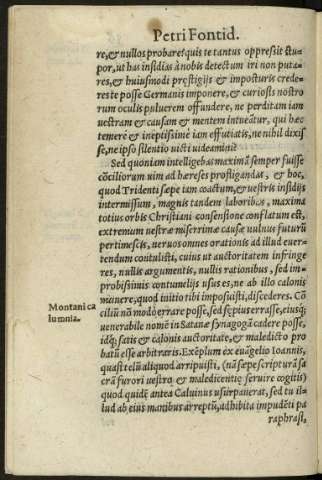 Petri Fontid.
re, & nullos probares quis te tantus oppressit stu-
por, ut has insidias à nobis detectum iri non puta-
res, & huiusmodi prestigijs & imposturis crede-
res te posse Germanis imponere, & curiosis nostro
rum oculis puluerem offundere, ne perditam iam
uestram & causam & mentem intueātur, qui hæc
temerè & ineptissimè iam effutiatis, ne nihil dixis
se, ne ipso silentio uicti uideamini?
Sed quoniam intelligebas maximā semper fuisse
cōciliorum uim ad hæreses profligandas, & hoc,
quod Tridenti sæpe iam coactum, & uestris insidijs
intermissum, magnis tandem laboribus, maxima
totius orbis Christiani consensione conflatum est,
extremum uestræ miserrimæ causæ uulnus futurū
pertimescis, neruos omnes orationis ad illud euer-
tendum contulisti, cuius ut auctoritatem infringe
res, nullis argumentis, nullis rationibus, sed im-
probissimis contumelijs usus es, ne ab illo calonis
munere, quod initio tibi imposuisti, discederes. Cō
Montani ca
lumnia.
ciliū nō modò errare posse, sed sępius errasse, eiusq;
uenerabile nomē in Satanæ synagogā cadere posse,
idq; satis & calonis auctoritate, & maledicto pro
batū esse arbitraris. Exēplum ex euāgelio Ioannis,
quasi telū aliquod arripuisti, (nā sæpe scripturā sa
crā furori uestro & maledicentiæ seruire cogitis)
quod quidē antea Caluinus usurpauerat, sed tu il-
lud ab eius manibus arreptū, adhibita impudēti pa
raphrasi,